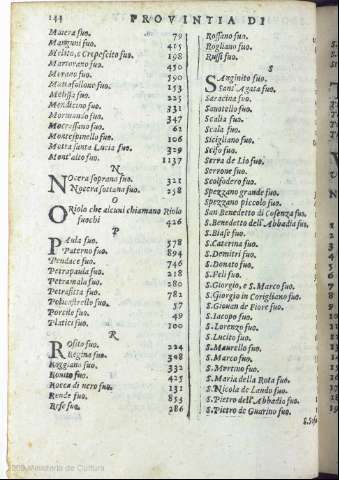 144 PROVINTIA DI
Maiera fuo. 79
Manguni fuo. 415
Melito, e Crepescito fuo. 198
Martorano fuo. 450
Merano fuo. 590
Mottafollone fuo. 153
Melissa fuo. 225
Mendicino fuo. 331
Mormando fuo. 347
Mocrossano fuo. 62
Montespinello fuo. 106
Motta santa Lucia fuo. 329
Mont'alto fuo. 1137
N
Nocera soprano fuo. 321
Nocera sottana fuo. 258
O
Oriolo che alcuni chiamano Riolo
fuochi 426
P
Paula fuo. 578
Paterno fuo. 894
Pendace fuo. 746
Petrapaula fuo. 218
Petramala fuo. 280
Petrafitta fuo. 782
Policastrello fuo. 57
Porcile fuo. 49
Platice fuo. 100
R
Rosito fuo. 224
Regina fuo. 308
Roggiano fuo. 332
Rouito fuo. 425
Rocca di nero fuo. 131
Rende fuo. 853
Rose fuo. 286
Rossano fuo.
Rogliano fuo.
Russi fuo.
S
Sanginito fuo.
Sant'Agata fuo.
Saracina fuo.
Sauotello fuo.
Scalia fuo.
Scala fuo.
Sicigliano fuo.
Scifo fuo.
Serra de Lio fuo.
Seruone fuo.
Scolfodero fuo.
Spezzano grande fuo.
Spezzano piccolo fuo.
San Benedetto di Cosenza fuo.
S. Benedetto dell'Abbadia fuo.
S. Biase fuo.
S. Caterina fuo.
S. Demitri fuo.
S. Donato fuo.
S. Feli fuo.
S. Giorgio, e S. Marco fuo.
S. Giorgio in Corigliano fuo.
S. Giouan de Fiore fuo.
S. Iacopo fuo.
S. Lorenzo fuo.
S. Lucito fuo.
S. Maurello fuo.
S. Marco fuo.
S. Martino fuo.
S. Maria della Rota fuo.
S. Nicola de Laudo fuo.
S. Pietro dell'Abbadio fuo.
S. Pietro de Guarino fuo.
Ministerio de Cultura